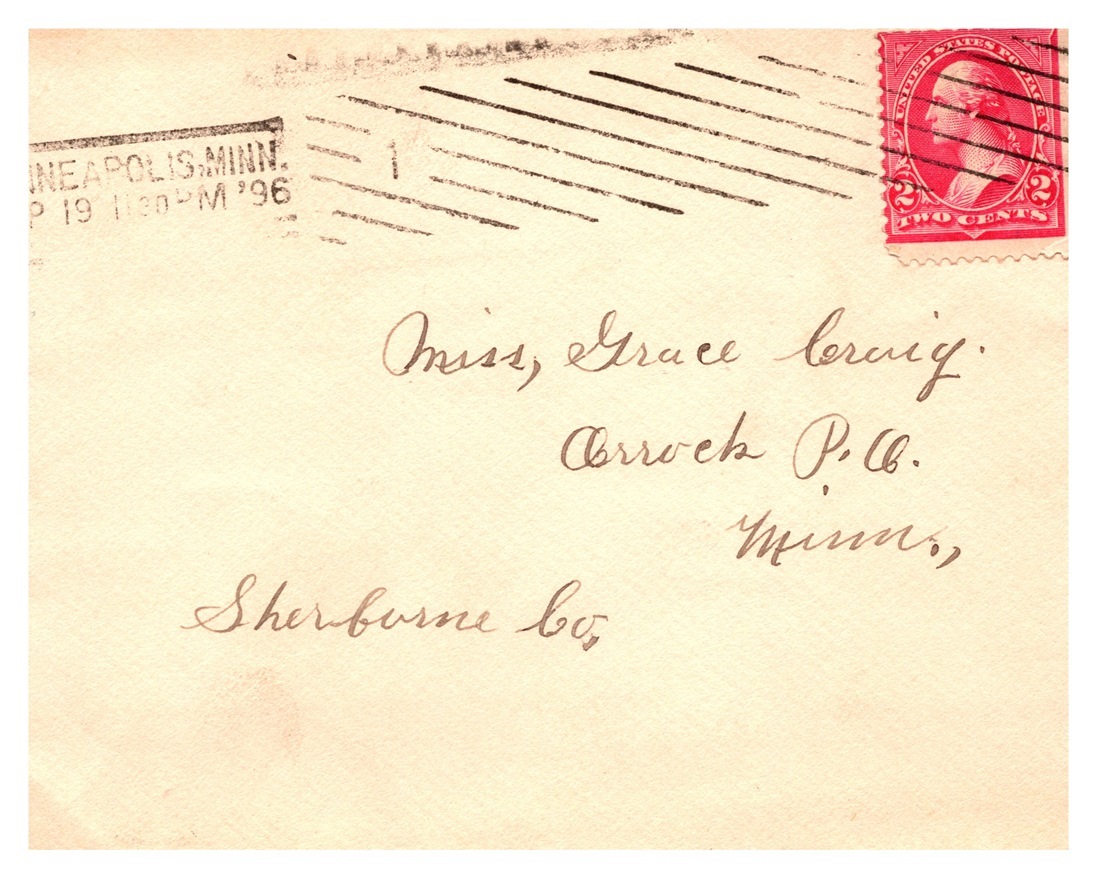 NNEAPOLIS, MINN.
P 19 1130 PM '96
1
UNITED STATES POSTAGE
2 2
TWO CENTS
Miss, Grace Craig.
Orrock P.O.
Minn.,
Sherburne Co,